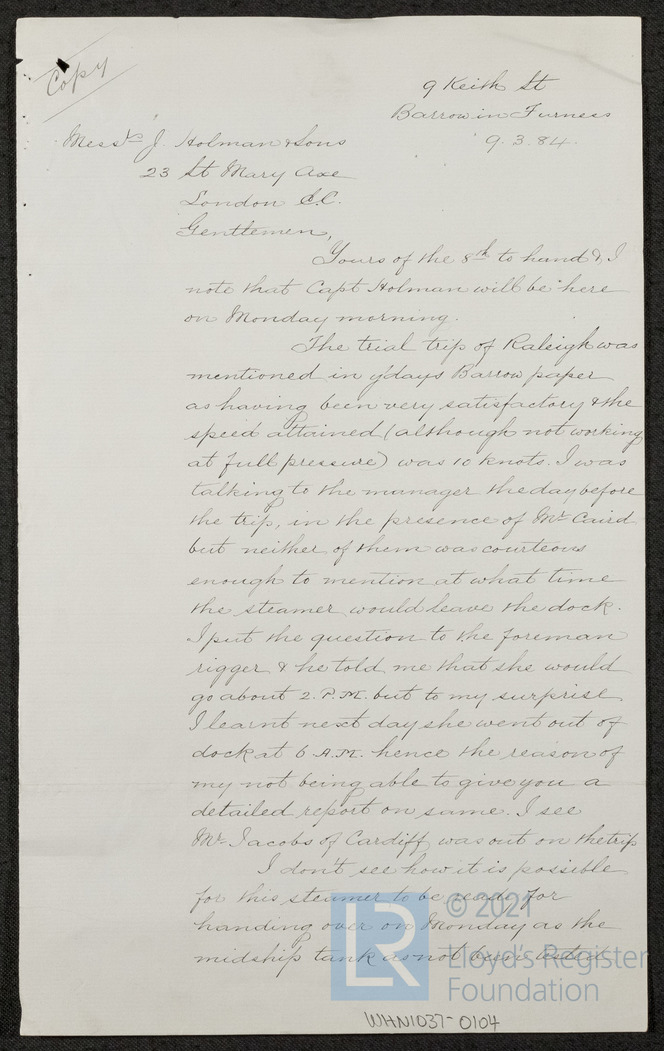 Copy
9 Keith St
Barrow in Furness
9.3.84.
Messrs J. Holman & Sons
23 St Mary Axe
London E.C.
Gentlemen,
Yours of the 8th to hand & I
note that Capt Holman will be here
on Monday morning.
The trial trip of Raleigh was
mentioned in y'days Barrow paper
as having been very satisfactory & the
speed attained (although not working
at full pressure) was 10 knots. I was
talking to the manager the day before
the trip, in the presence of Mr Caird
but neither of them was courteous
enough to mention at what time
the steamer would leave the dock.
I put the question to the foreman
rigger & he told me that she would
go about 2. P.M. but to my surprise
I learnt next day she went out of
dock at 6 A.M. hence the reason of
my not being able to give you a
detailed report on same. I see
Mr Jacobs of Cardiff was out on the trip
I don't see how it is possible
for this steamer to be ready for
handing over on Monday as the
midship tank as not been tested
LR
© 2021
Lloyd's Register
Foundation
WHN1037-0104